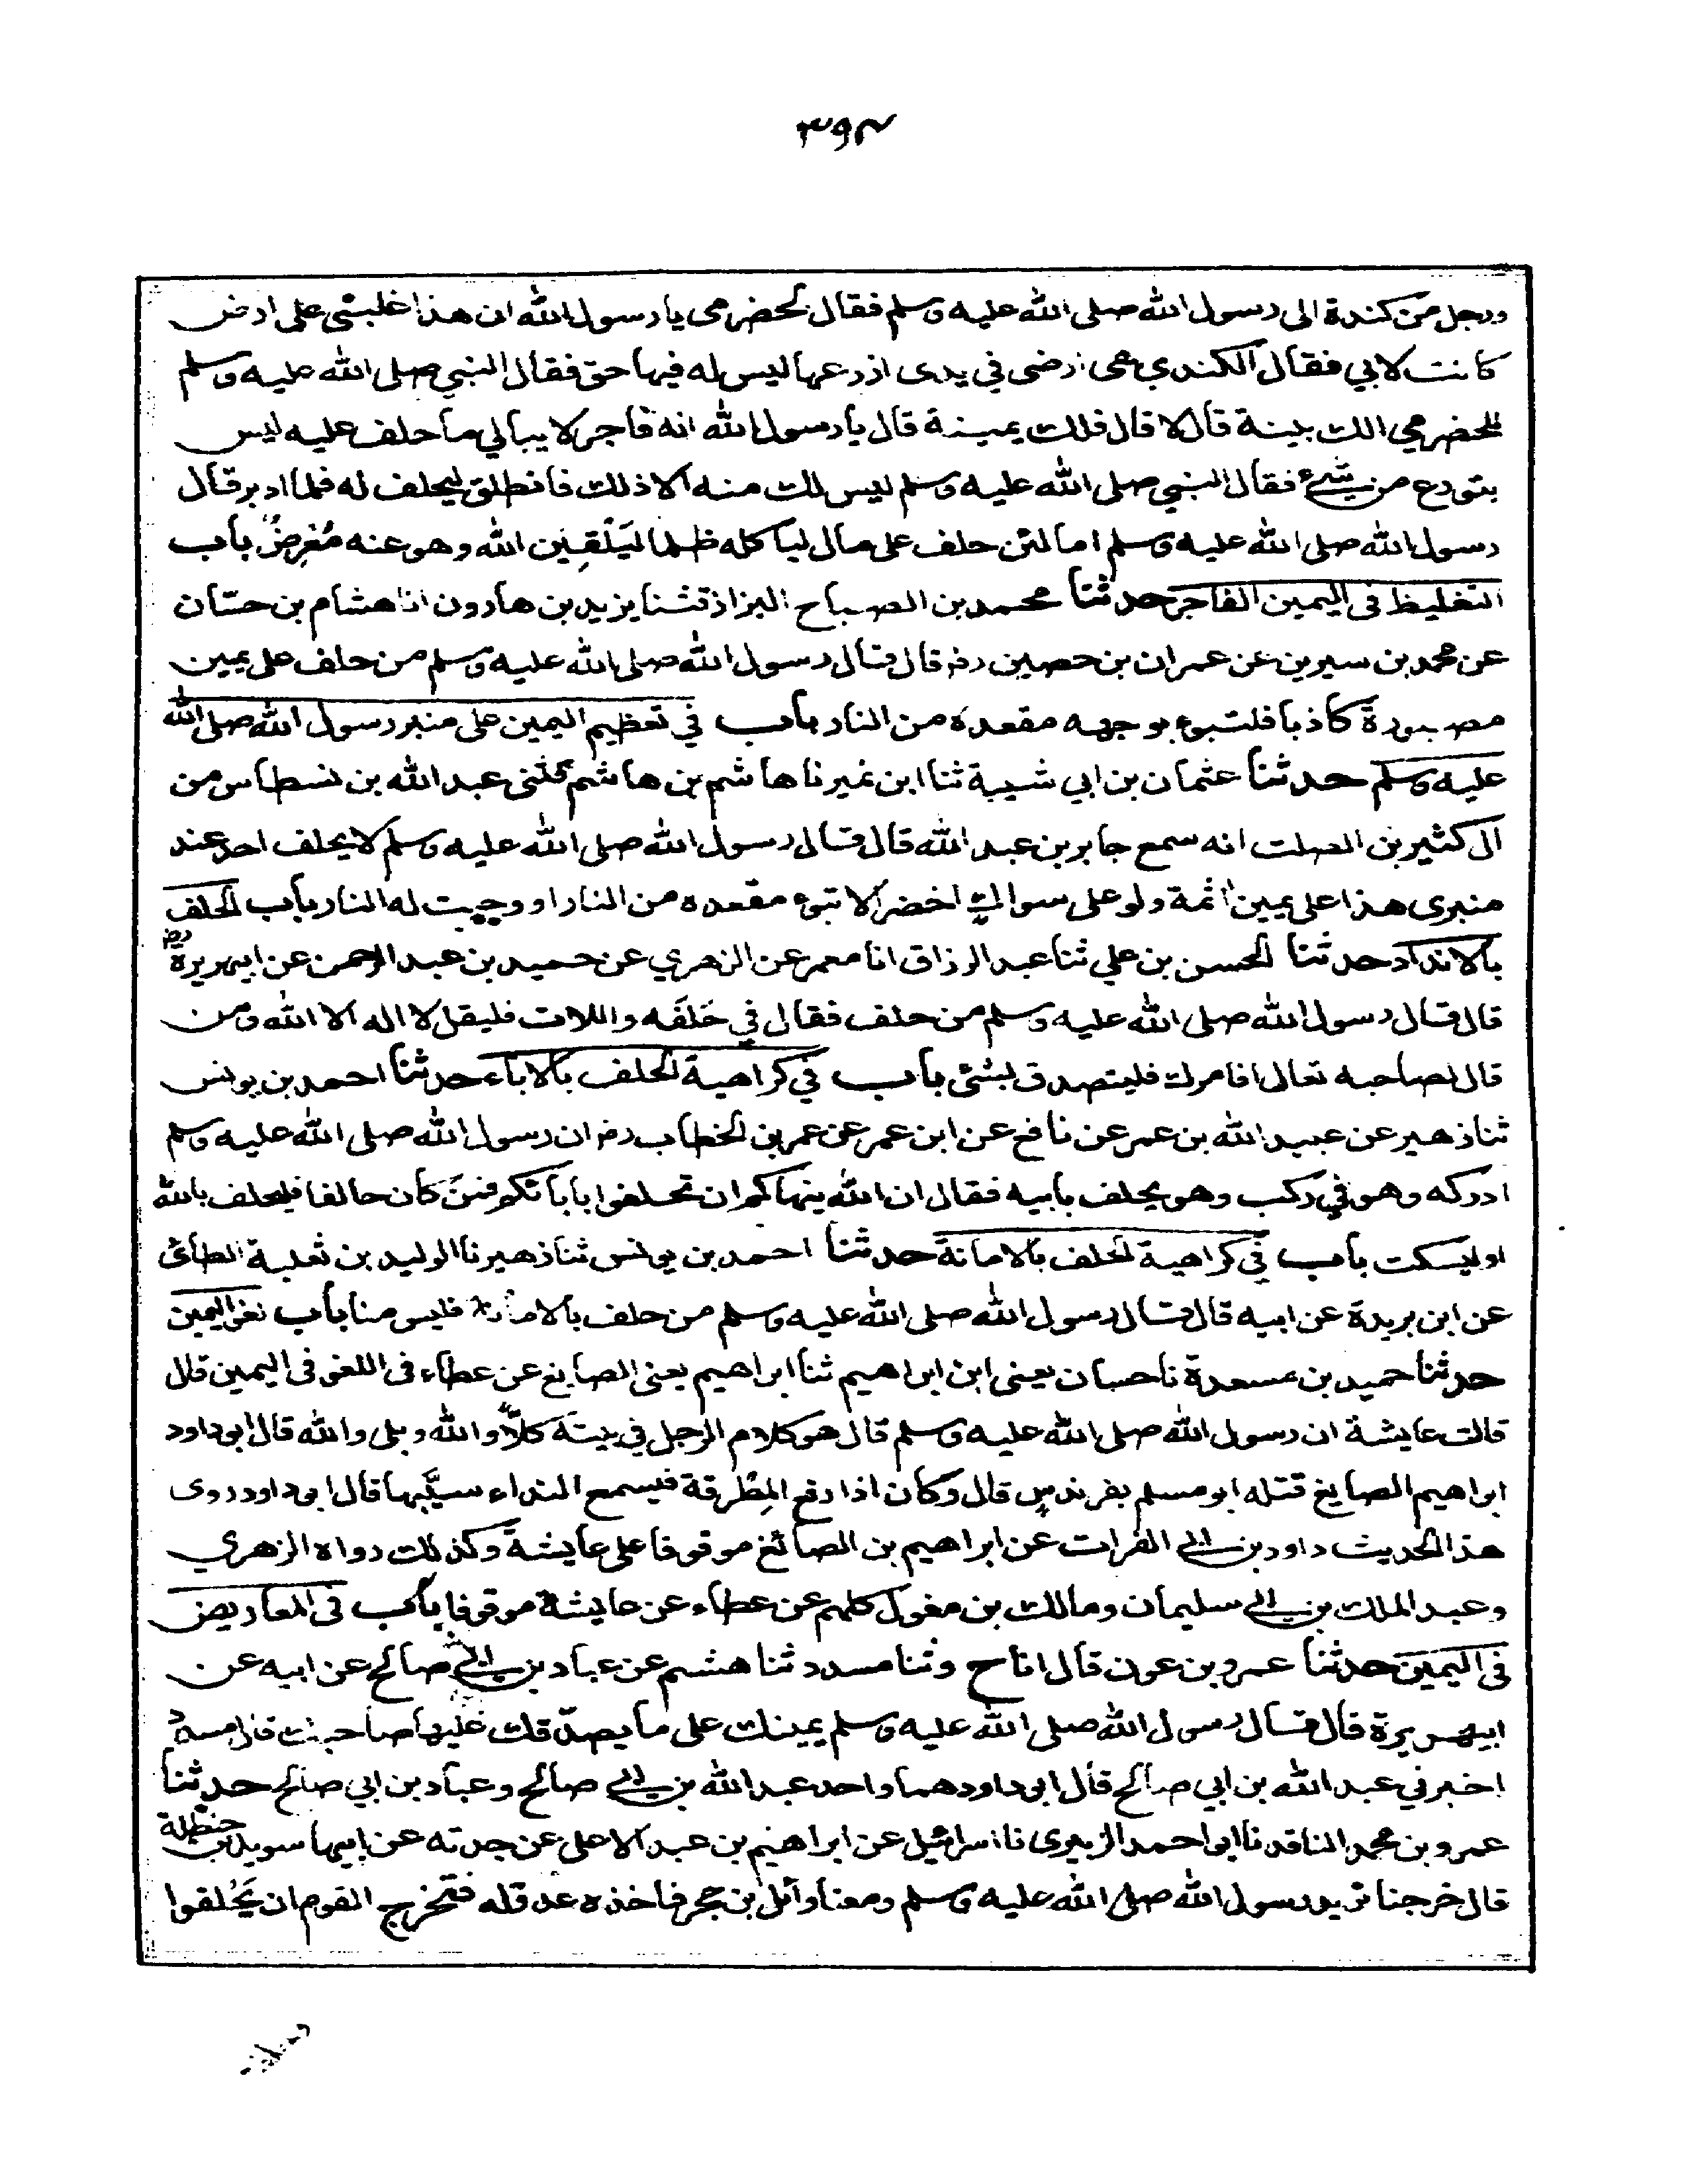 ٣٩٣
ورجل من كندة الى رسول الله صلى الله عليه وسلم فقال الحضرمي يا رسول الله ان هذا غلبني على ارض
كانت لابي فقال الكندي هي ارضى في يدى ازرعها ليس له فيها حق فقال النبي صلى الله عليه وسلم
للحضرمي الك بينة قال لا قال فلك يمينة قال يا رسول الله انه فاجر لا يبالي ما حلف عليه ليس
يتورع من شيء فقال النبي صلى الله عليه وسلم ليس لك منه الا ذلك فانطلق ليحلف له فلما ادبر قال
رسول الله صلى الله عليه وسلم اما لئن حلف على مال لياكله ظلما ليَلْقِيَن الله وهو عنه مُعْرِضٌ باب
التغليظ فى اليمين الفاجر حدثنا محمد بن الصباح البزاز ثنا يزيد بن هارون انا هشام بن حسّان
عن محمد بن سيرين عن عمران بن حصين رضـ قال قال رسول الله صلى الله عليه وسلم من حلف على يمين
مصبورة كاذبا فلتبوء بوجهه مقعده من النار باب في تعظيم اليمين على منبر رسول الله صلى الله
عليه وسلم حدثنا عثمان بن ابي شيبة ثنا ابن نمير نا هاشم بن هاشم حدثنى عبد الله بن نسطاس من
ال كثير بن الصلت انه سمع جابر بن عبد الله قال قال رسول الله صلى الله عليه وسلم لا يحلف احد عند
منبرى هذا على يمين اٰثمة ولو على سواك اخضر الا تبوء مقعده من النار او وجبت له النار باب الحلف
بالانداد حدثنا الحسن بن علي ثنا عبد الرزاق انا معمر عن الزهري عن حميد بن عبد الرحمن عن ابيهريرة رضـ
قال قال رسول الله صلى الله عليه وسلم من حلف فقال في حَلَفَه واللات فليقل لا اله الا الله ومن
قال لصاحبه تعال اقامرك فليتصدق بشئ باب في كراهية الحلف بالاباء حدثنا احمد بن يونس
ثنا زهير عن عبيد الله بن عمر عن نافع عن ابن عمر عن عمر بن الخطاب رضـ ان رسول الله صلى الله عليه وسلم
ادركه وهو في ركب وهو يحلف بابيه فقال ان الله ينهاكم ان تحلفوا باباٰئكم فمن كان حالفا فليحلف بالله
او ليسكت باب في كراهية الحلف بالامانة حدثنا احمد بن يونس ثنا زهير نا الوليد بن ثعلبة الطائى
عن ابن بريدة عن ابيه قال قال رسول الله صلى الله عليه وسلم من حلف بالامانة فليس منا باب لغو اليمين
حدثنا حميد بن مسعدة نا حسان يعنى ابن ابراهيم ثنا ابراهيم يعنى الصايغ عن عطاء فى اللغو فى اليمين قال
قالت عايشة ان رسول الله صلى الله عليه وسلم قال هو كلام الرجل في بيته كَلَّا والله وبلى والله قال ابو داود
ابراهيم الصايغ قتله ابو مسلم بفرندس قال وكان اذا رفع المِطْرقة فيسمع النداء سيّبها قال ابو داود روى
هذا الحديث داود بن ابي الفرات عن ابراهيم بن الصائغ موقوفا على عايشة وكذلك رواه الزهري
وعبد الملك بن ابي سليمان ومالك بن مغول كلهم عن عطاء عن عايشة موقوفا باب فى المعاريض
فى اليمين حدثنا عمرو بن عون قال انا ح وثنا مسدد ثنا هشيم عن عباد بن ابي صالح عن ابيه عن
ابيهريرة قال قال رسول الله صلى الله عليه وسلم يمينك على ما يصدّقك عليها صاحبك قال مسدد
اخبرني عبد الله بن ابي صالح قال ابو داود هما واحد عبد الله بن ابي صالح وعباد بن ابي صالح حدثنا
عمرو بن محمد الناقد نا ابو احمد الزبيرى نا اسرائيل عن ابراهيم بن عبد الاعلى عن جدته عن ابيها سويد بن حنظلة
قال خرجنا نريد رسول الله صلى الله عليه وسلم ومعنا وائل بن حجر فاخذه عدو له فتحرج القوم ان يَحْلفوا